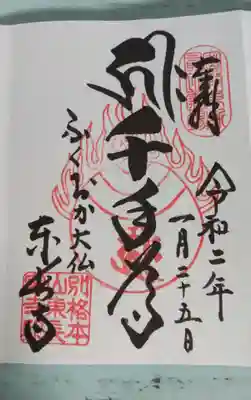 奉拝
令和二年
一月二十五日
千手観音
ふくおか大仏
東長寺
別格本
山東長
寺